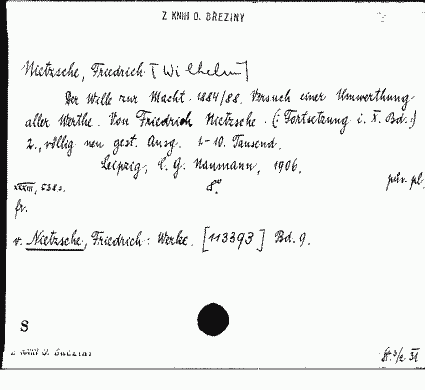 Z KNIH O. BŘEZINY
Nietzsche, Friedrich [Wilhelm]
Der Wille zur Macht. 1884/88. Versuch einer Umwerthung
aller Werthe. Von Friedrich Nietzsche. (: Fortsetzung i. X. Bd.:)
2., völlig neu gest. Ausg. 1-10. Tausend.
Leipzig, C. G. Naumann, 1906.
XXXIII, 538 s. 8°. plův. pl.
fr.
v. Nietzsche, Friedrich: Werke. [113393] Bd. 9.
S
Z KNIH O. BŘEZINY